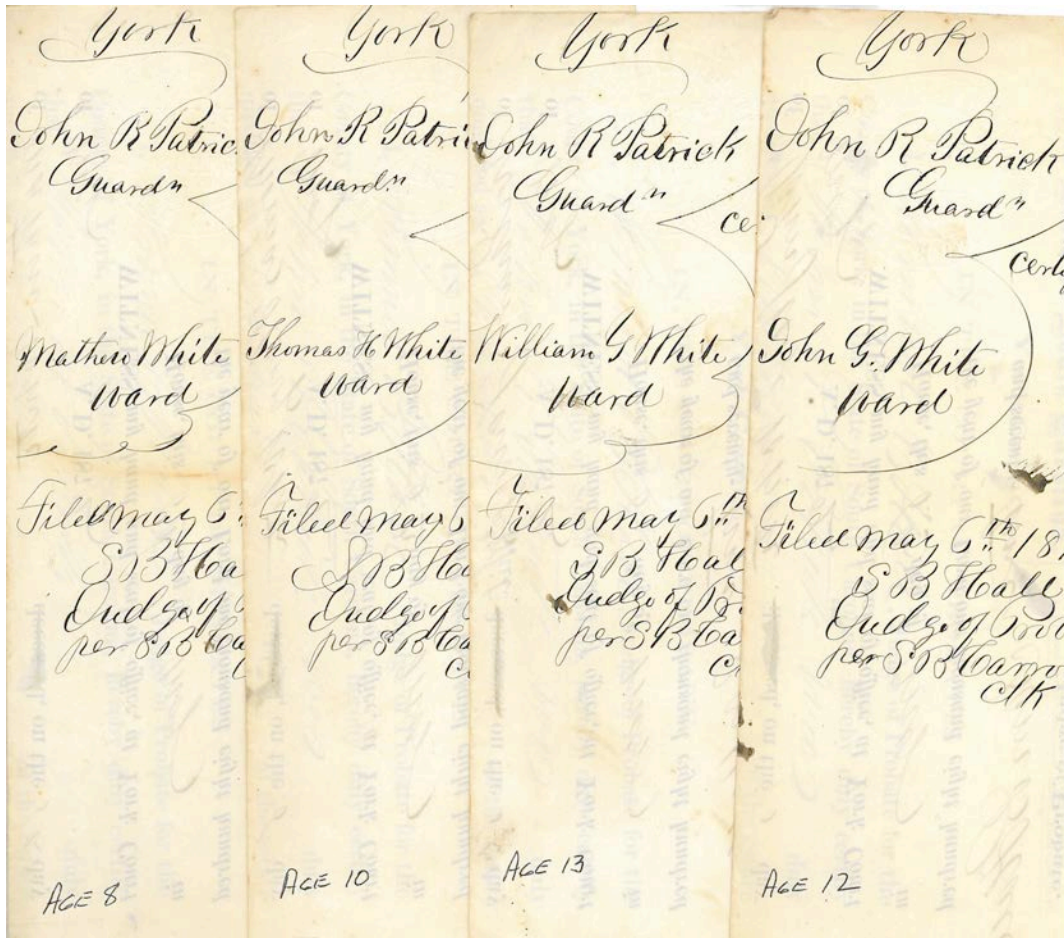 York
John R Patric
Guardn
Mathew White
Ward
Filed May 6
S B Ha
Judge of
per S B Ca
AGE 8
York
John R Patri
Guardn
Thomas H White
Ward
Filed May 6
S B Ha
Judge of
per S B Ca
C
AGE 10
York
John R Patrick
Guardn
ce
William G White
Ward
Filed May 6th
S B Hal
Judge of Pro
per S B Ca
C
AGE 13
York
John R Patrick
Guardn
Certi
John G. White
Ward
Filed May 6th 18
S B Hall
Judge of Prob
per S B Carro
Clk
AGE 12